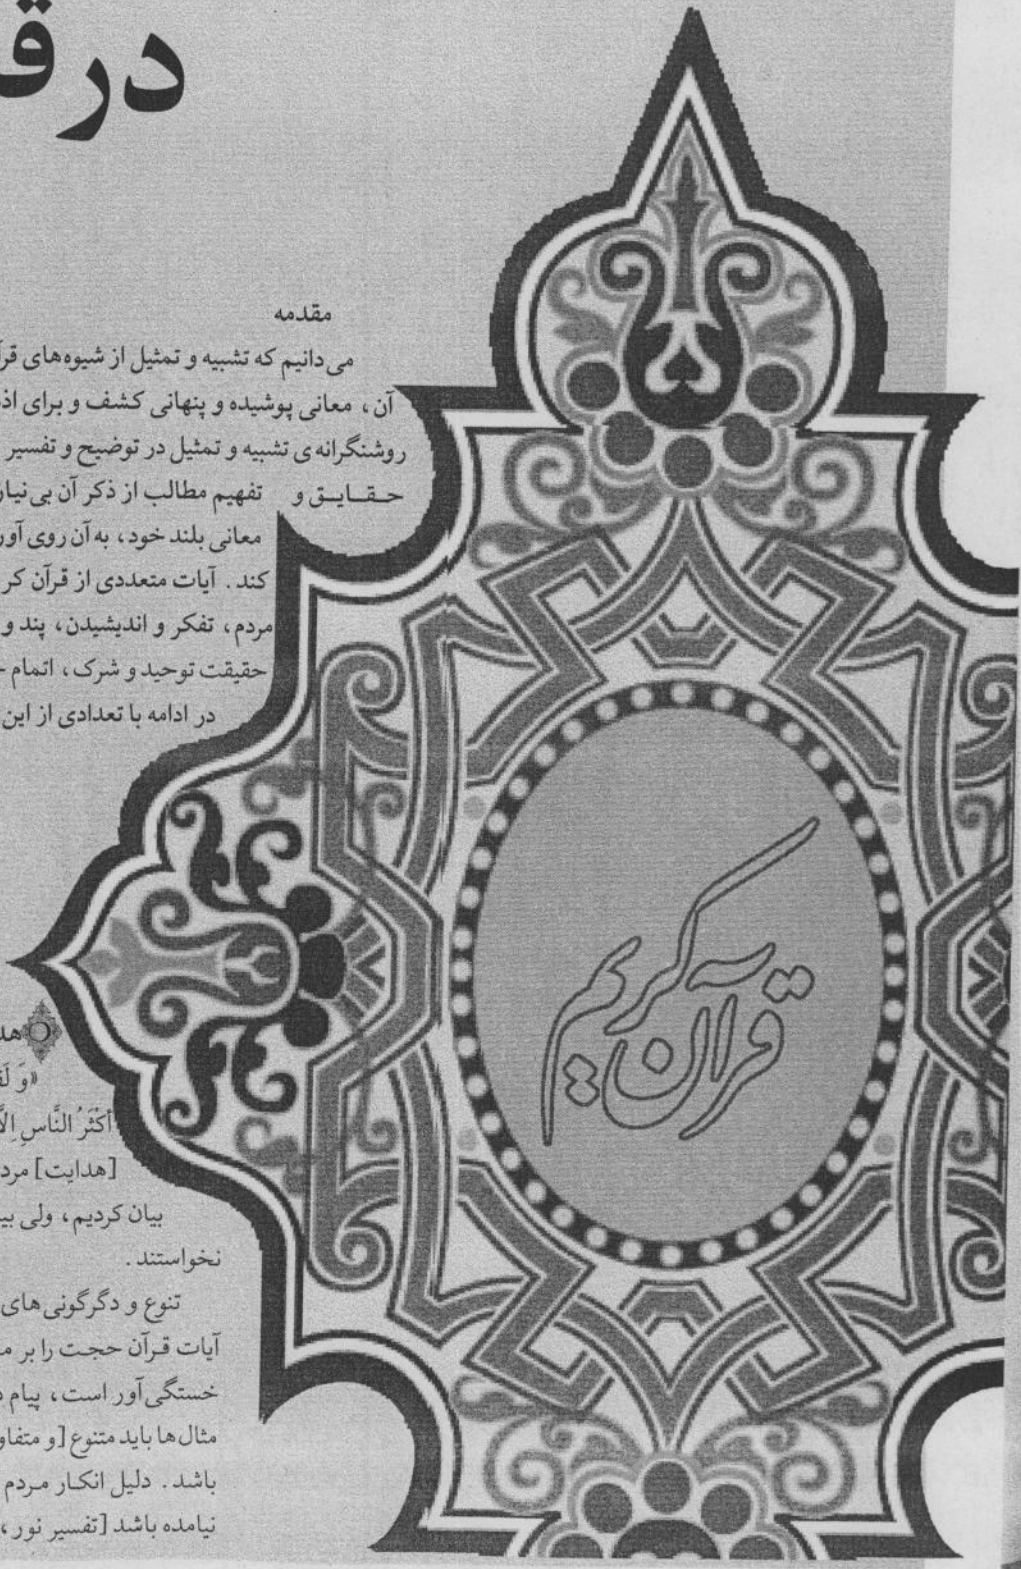 در
مقدمه
می‌دانیم که تشبیه و تمثیل از شیوه‌های
آن، معانی پوشیده و پنهانی کشف و برای
روشنگرانه‌ی تشبیه و تمثیل در توضیح و تفسیر
حقایق و تفهیم مطالب از ذکر آن
معانی بلند خود، به آن روی
کند. آیات متعددی از قرآن
مردم، تفکر و اندیشیدن، پند و
حقیقت توحید و شرک، اتمام
در ادامه با تعدادی از این
قرآن کریم
«وَ
أَكْثَرُ النَّاسِ
[هدایت]
بیان کردیم، ولی
نخواستند.
تنوع و دگرگونی‌های
آیات قرآن حجت را بر
خستگی‌آور است، پیام
مثال‌ها باید متنوع [و
باشد. دلیل انکار مردم
نیامده باشد [تفسیر نور،